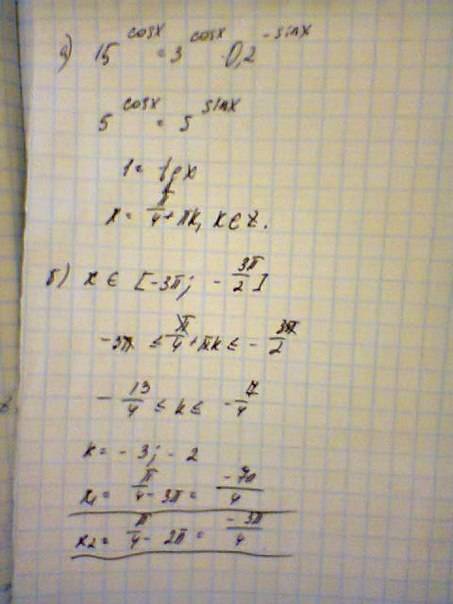 а) 15^cosx = 3^cosx · 0,2^-sinx
5^cosx = 5^sinx
1 = tgx
x = π/4 + πk, k ∈ z.
б) x ∈ [-3π; -3π/2]
-3π ≤ π/4 + πk ≤ -3π/2
-13/4 ≤ k ≤ -7/4
k = -3; -2
x₁ = π/4 - 3π = -7π/4
x₂ = π/4 - 2π = -3π/4